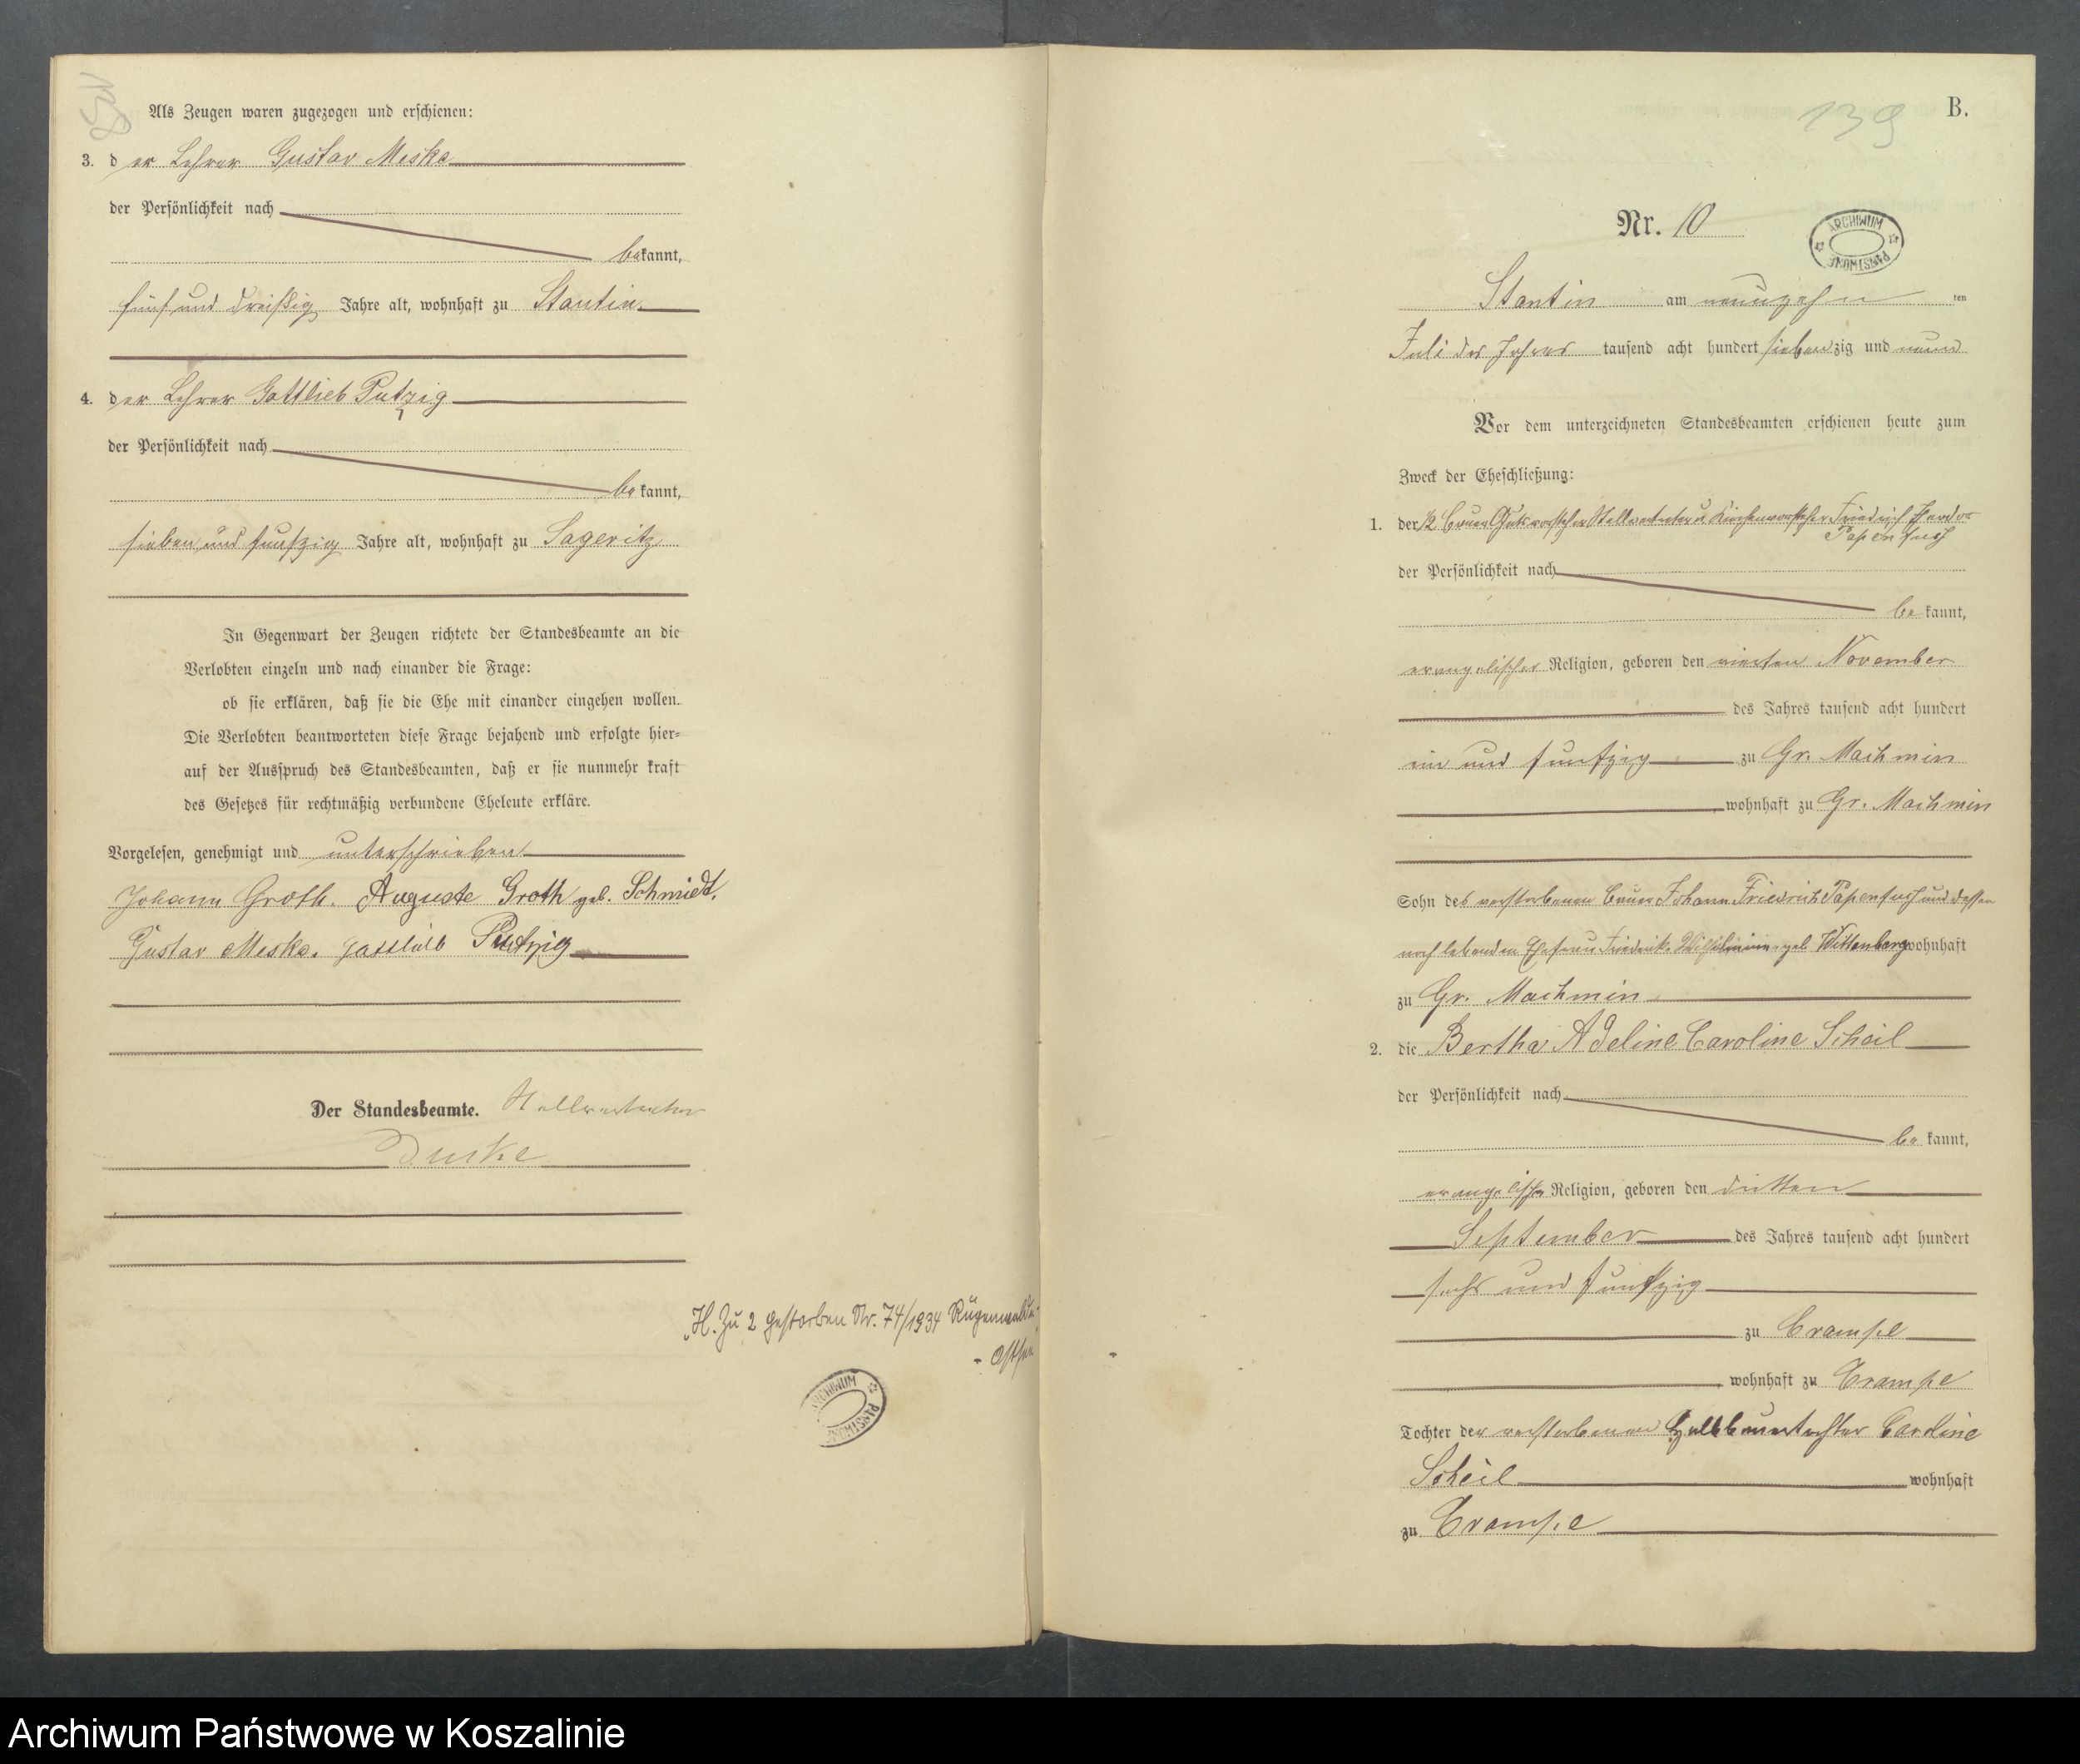 Als Zeugen waren zugezogen und erschienen:
3. der Lehrer Gustav Meske
der Persönlichkeit nach
bekannt,
fünf und dreißig Jahre alt, wohnhaft zu Stantin
4. der Lehrer Gottlieb Putzig
der Persönlichkeit nach
bekannt,
sieben und funfzig Jahre alt, wohnhaft zu Sageritz
In Gegenwart der Zeugen richtete der Standesbeamte an die
Verlobten einzeln und nach einander die Frage:
ob sie erklären, daß sie die Ehe mit einander eingehen wollen.
Die Verlobten beantworteten diese Frage bejahend und erfolgte hier-
auf der Ausspruch des Standesbeamten, daß er sie nunmehr kraft
des Gesetzes für rechtmäßig verbundene Eheleute erkläre.
Vorgelesen, genehmigt und unterschrieben
Johann Groth. Auguste Groth geb. Schmidt.
Gustav Meske. Gottlieb Putzig
Der Standesbeamte. Stellvertreter
H. Zu 2 gestorben Nr. 74/1934 Rügenwalde
- Ostsee
ARCHIWUM PAŃSTWOWE
139
B.
Nr. 10
ARCHIWUM PAŃSTWOWE
Stantin am neunzehn ten
Juli des Jahres tausend acht hundert siebenzig und neun
Vor dem unterzeichneten Standesbeamten erschienen heute zum
Zweck der Eheschließung:
1. der 1/2 Bauer Gutsvorsteher Stellvertreter u Kirchenvorsteher Friedrich
Papenfuß
der Persönlichkeit nach
bekannt,
evangelischer Religion, geboren den vierten November
des Jahres tausend acht hundert
ein und funfzig zu Gr. Machmin
wohnhaft zu Gr. Machmin
Sohn des verstorbenen Bauer Johann Friedrich Papenfuß und dessen
noch lebenden Ehefrau Friederike Wilhelmine geb. Wittenberg wohnhaft
zu Gr. Machmin
2. die Bertha Adeline Caroline Scheil
der Persönlichkeit nach
bekannt,
evangelischer Religion, geboren den dritten
September des Jahres tausend acht hundert
sechs und funfzig
zu Crampe
wohnhaft zu Crampe
Tochter der verstorbenen Halbbauertochter Caroline
Scheil wohnhaft
zu Crampe
Archiwum Państwowe w Koszalinie